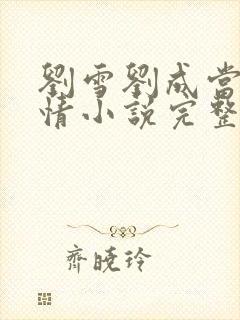 劉雪劉成當
情小說完整
齊曉玲